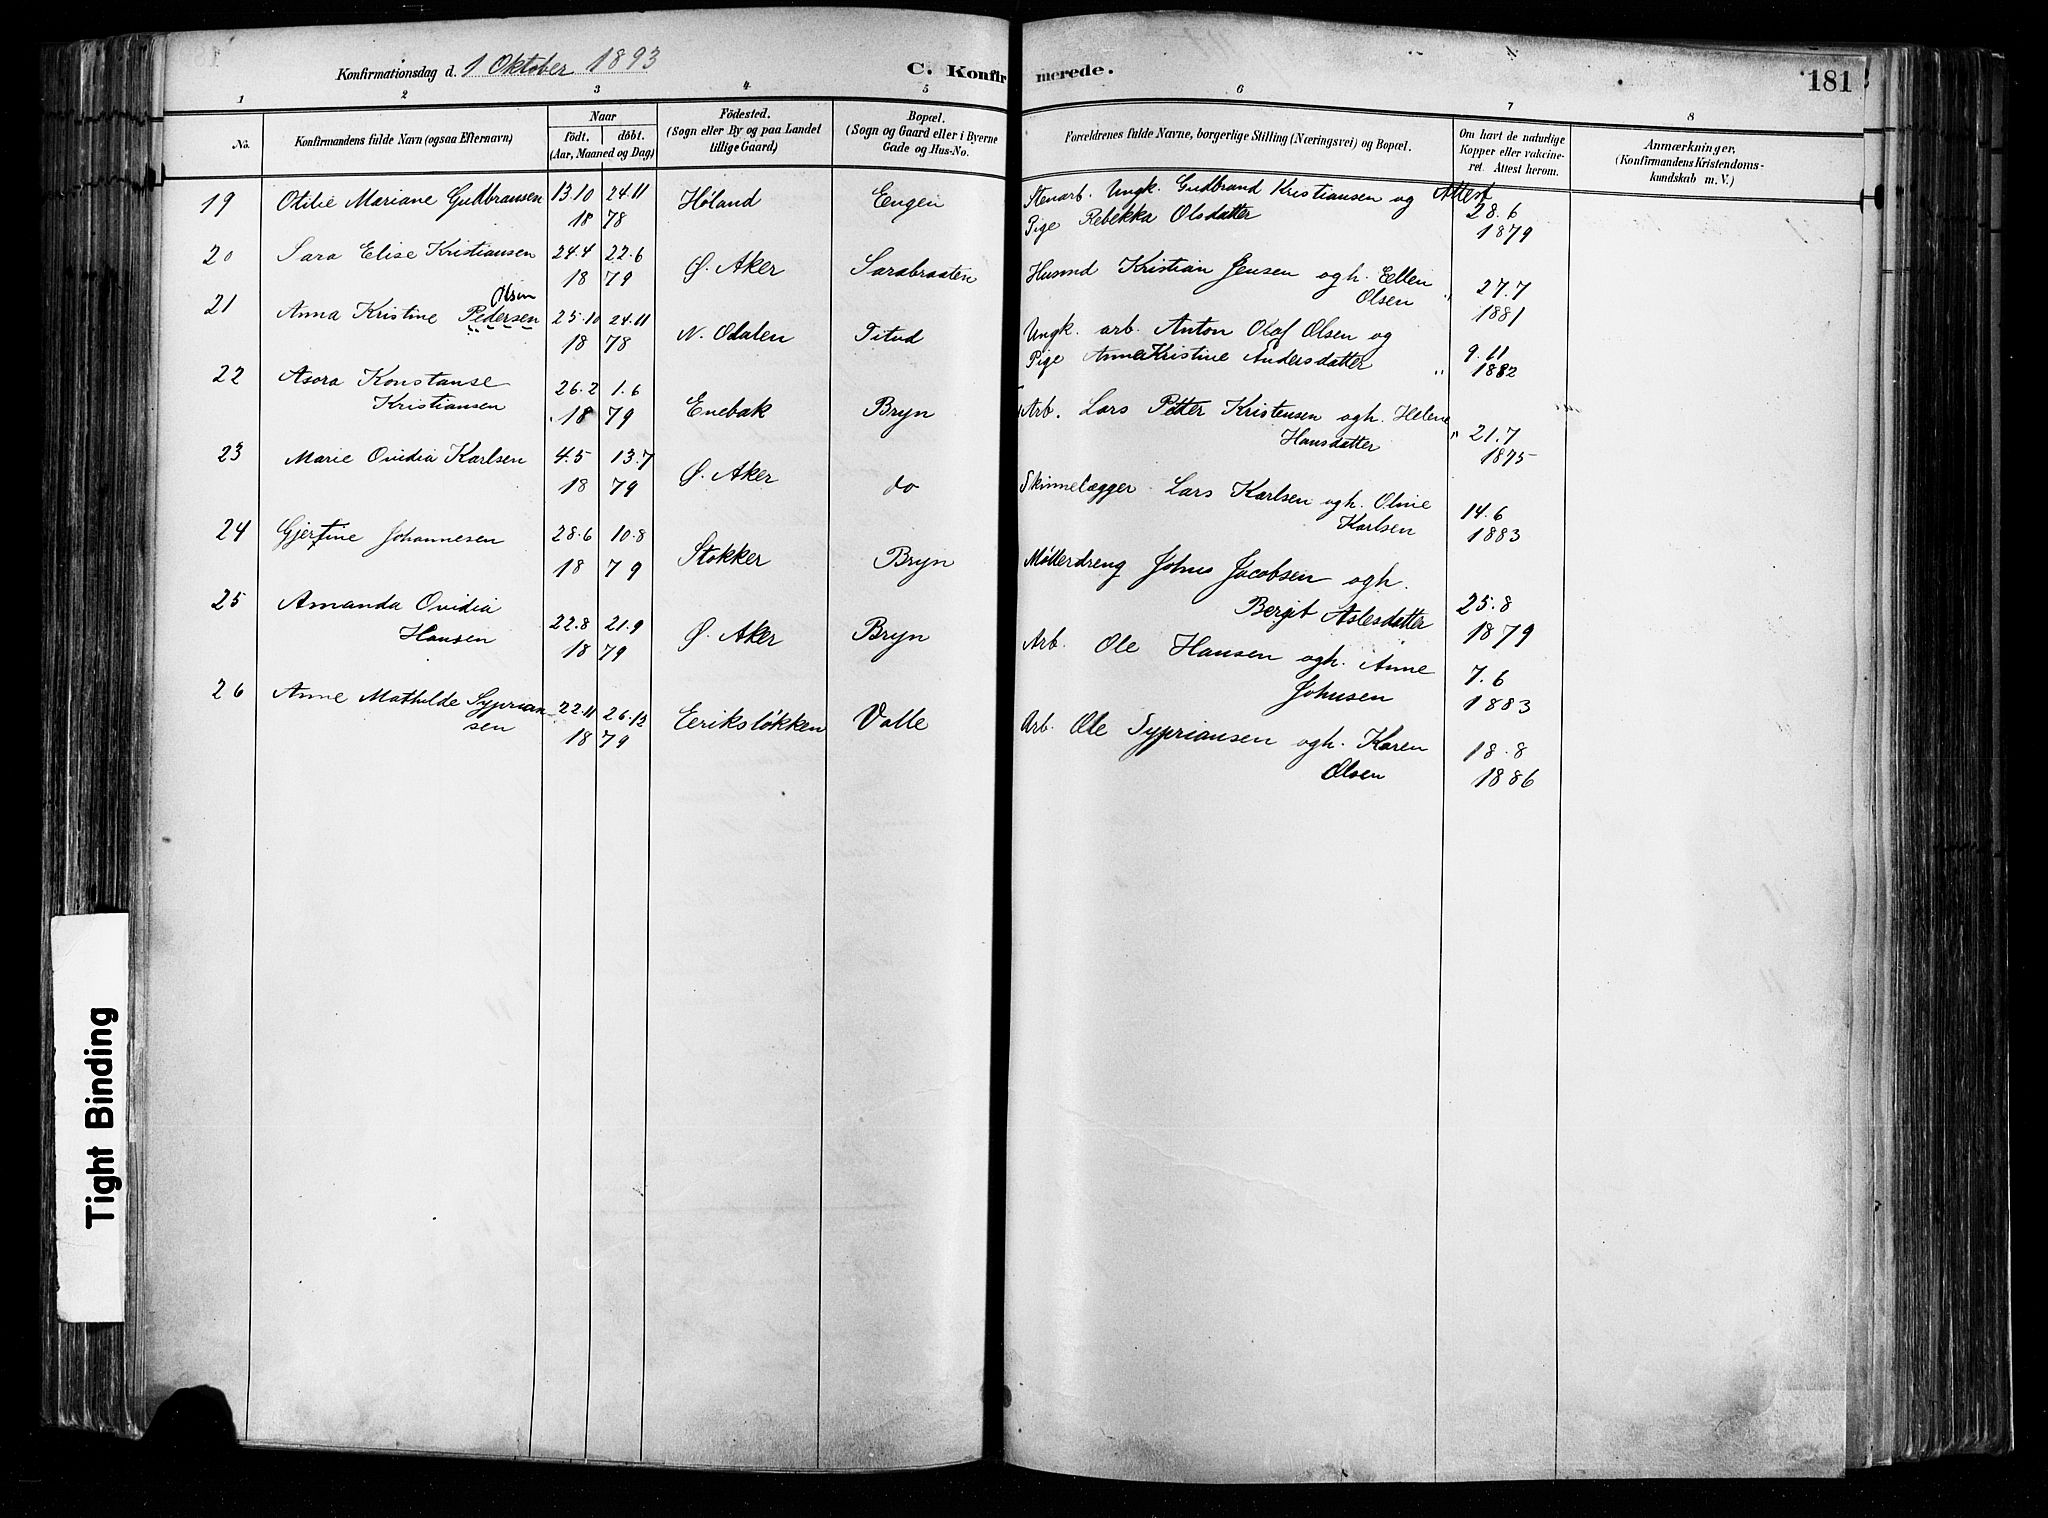 Konfirmationsdag d. 1 Oktober 1893
C. Konfirmerede.
181
1 2 3 4 5 6 7 8
No.
Konfirmandens fulde Navn (ogsaa Efternavn)
Naar
födt. döbt.
(Aar, Maaned og Dag)
Födested.
(Sogn eller By og paa Landet
tillige Gaard)
Bopæl.
(Sogn og Gaard eller i Byerne
Gade og Hus-No.
Forældrenes fulde Navne, borgerlige Stilling (Næringsvei) og Bopæl.
Om havt de naturlige
Kopper eller vakcine-
ret. Attest herom.
Anmærkninger,
(Konfirmandens Kristendoms-
kundskab m. V.)
19 Otilie Mariane Gudbransen 13.10 24.11 Høland Engen Stenarb. Ungk. Gudbrand Kristiansen og Attest
18 78 Pige Rebekka Olsdatter 28.6
1879
20 Sara Elise Kristiansen 24.4 22.6 Ø. Aker Sarabraaten Husmd Kristian Jensen ogh. Ellen
18 79 Olsen " 27.7
1881
Olsen
21 Anna Kristine Pedersen 25.10 24.11 N. Odalen Titud Ungk. arb. Anton Olaf Olsen og
18 78 Pige Anne Kristine Andersdatter " 9.11
1882
22 Asora Konstanse 26.2 1.6 Enebak Bryn Arb. Lars Petter Kristensen ogh. Helene
Kristiansen 18 79 Hansdatter " 21.7
1875
23 Marie Ovidia Karlsen 4.5 13.7 Ø. Aker do Skinnelægger Lars Karlsen ogh. Oline
18 79 Karlsen 14.6
1883
24 Gjertine Johannesen 28.6 10.8 Stokker Bryn Møllerdreng Johns Jacobsen ogh.
18 79 Bergit Aslesdatter 25.8
1879
25 Amanda Ovidia 22.8 21.9 Ø. Aker Bryn Arb. Ole Hansen ogh. Anne
Hansen 18 79 Johnsen 7.6
1883
26 Anne Mathilde Syprian- 22.11 26.12 Eeriksløkken Valle Arb. Ole Sypriansen ogh. Karen
sen 18 79 Olsen 18.8
1886
Tight Binding